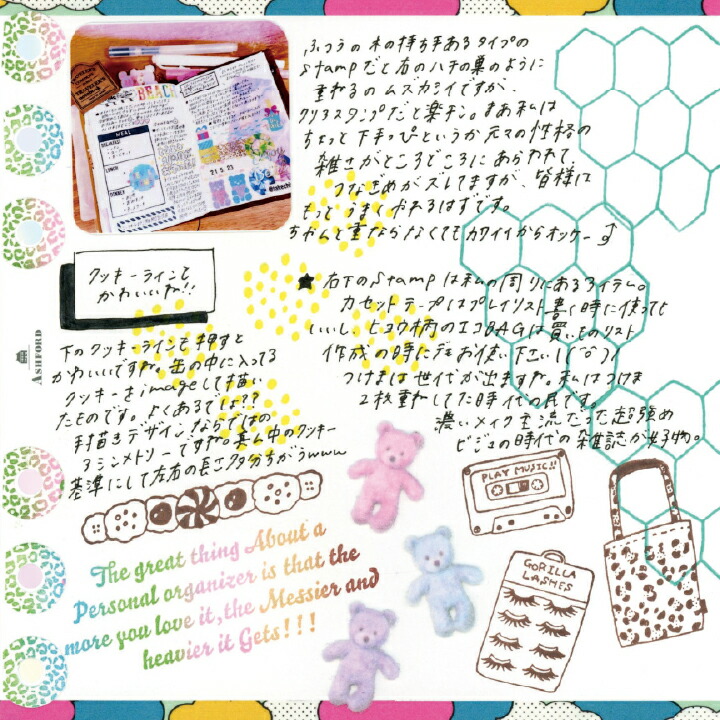 ふつうの木の持ち手あるタイプの
stampだと右のハチの巣のように
重ねるのムズカシイですが、
クリアスタンプだと楽チン。まぁ私は
ちょっと下手っぴというか元々の性格の
雑さがところどころにあらわれて、
つなぎめがズレてますが、皆様は
もっとうまくやれるはずです。
ちゃんと重ならなくてもカワイイからオッケー♪
クッキーラインとか
かわいいね!!
★右下のstampは私の周りにあるアイテム。
カセットテープはプレイリスト書く時に使っても
いいし、ヒョウ柄のエコBAGは買いものリスト
作成の時にでもお使い下さい
つけまは世代が出ますが。私はつけま
2枚重ねしてた時代の民です。
濃いメイク主流だった超強め
ビジュの時代の雑誌が好物。
ASHFORD
下のクッキーラインで押すと
かわいいですが。缶の中に入ってる
クッキーをimageして描い
たものです。よくあるでしょ??
手描きデザインならではの
アシンメトリーですが真ん中のクッキー
基準にして左右の長さ多分ちがうwww
BEACH
MEAL
BREAKFAST
LUNCH
DINNER
21.5.23
PLAY MUSIC!!
GORILLA
LASHES
The great thing About a
Personal organizer is that the
more you love it, the Messier and
heavier it Gets!!!